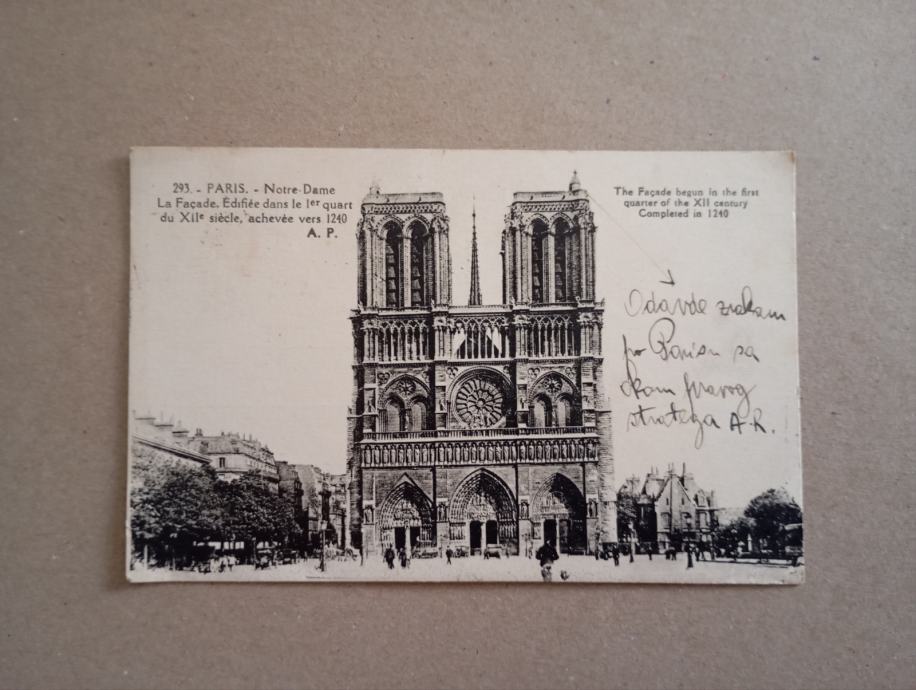 293. - PARIS. - Notre-Dame
La Façade. Édifiée dans le 1er quart
du XIIe siècle, achevée vers 1240
A. P.
The Façade begun in the first
quarter of the XII century
Completed in 1240
Odavde zrakam
po Parisu sa
okom pravog
stratega A.R.